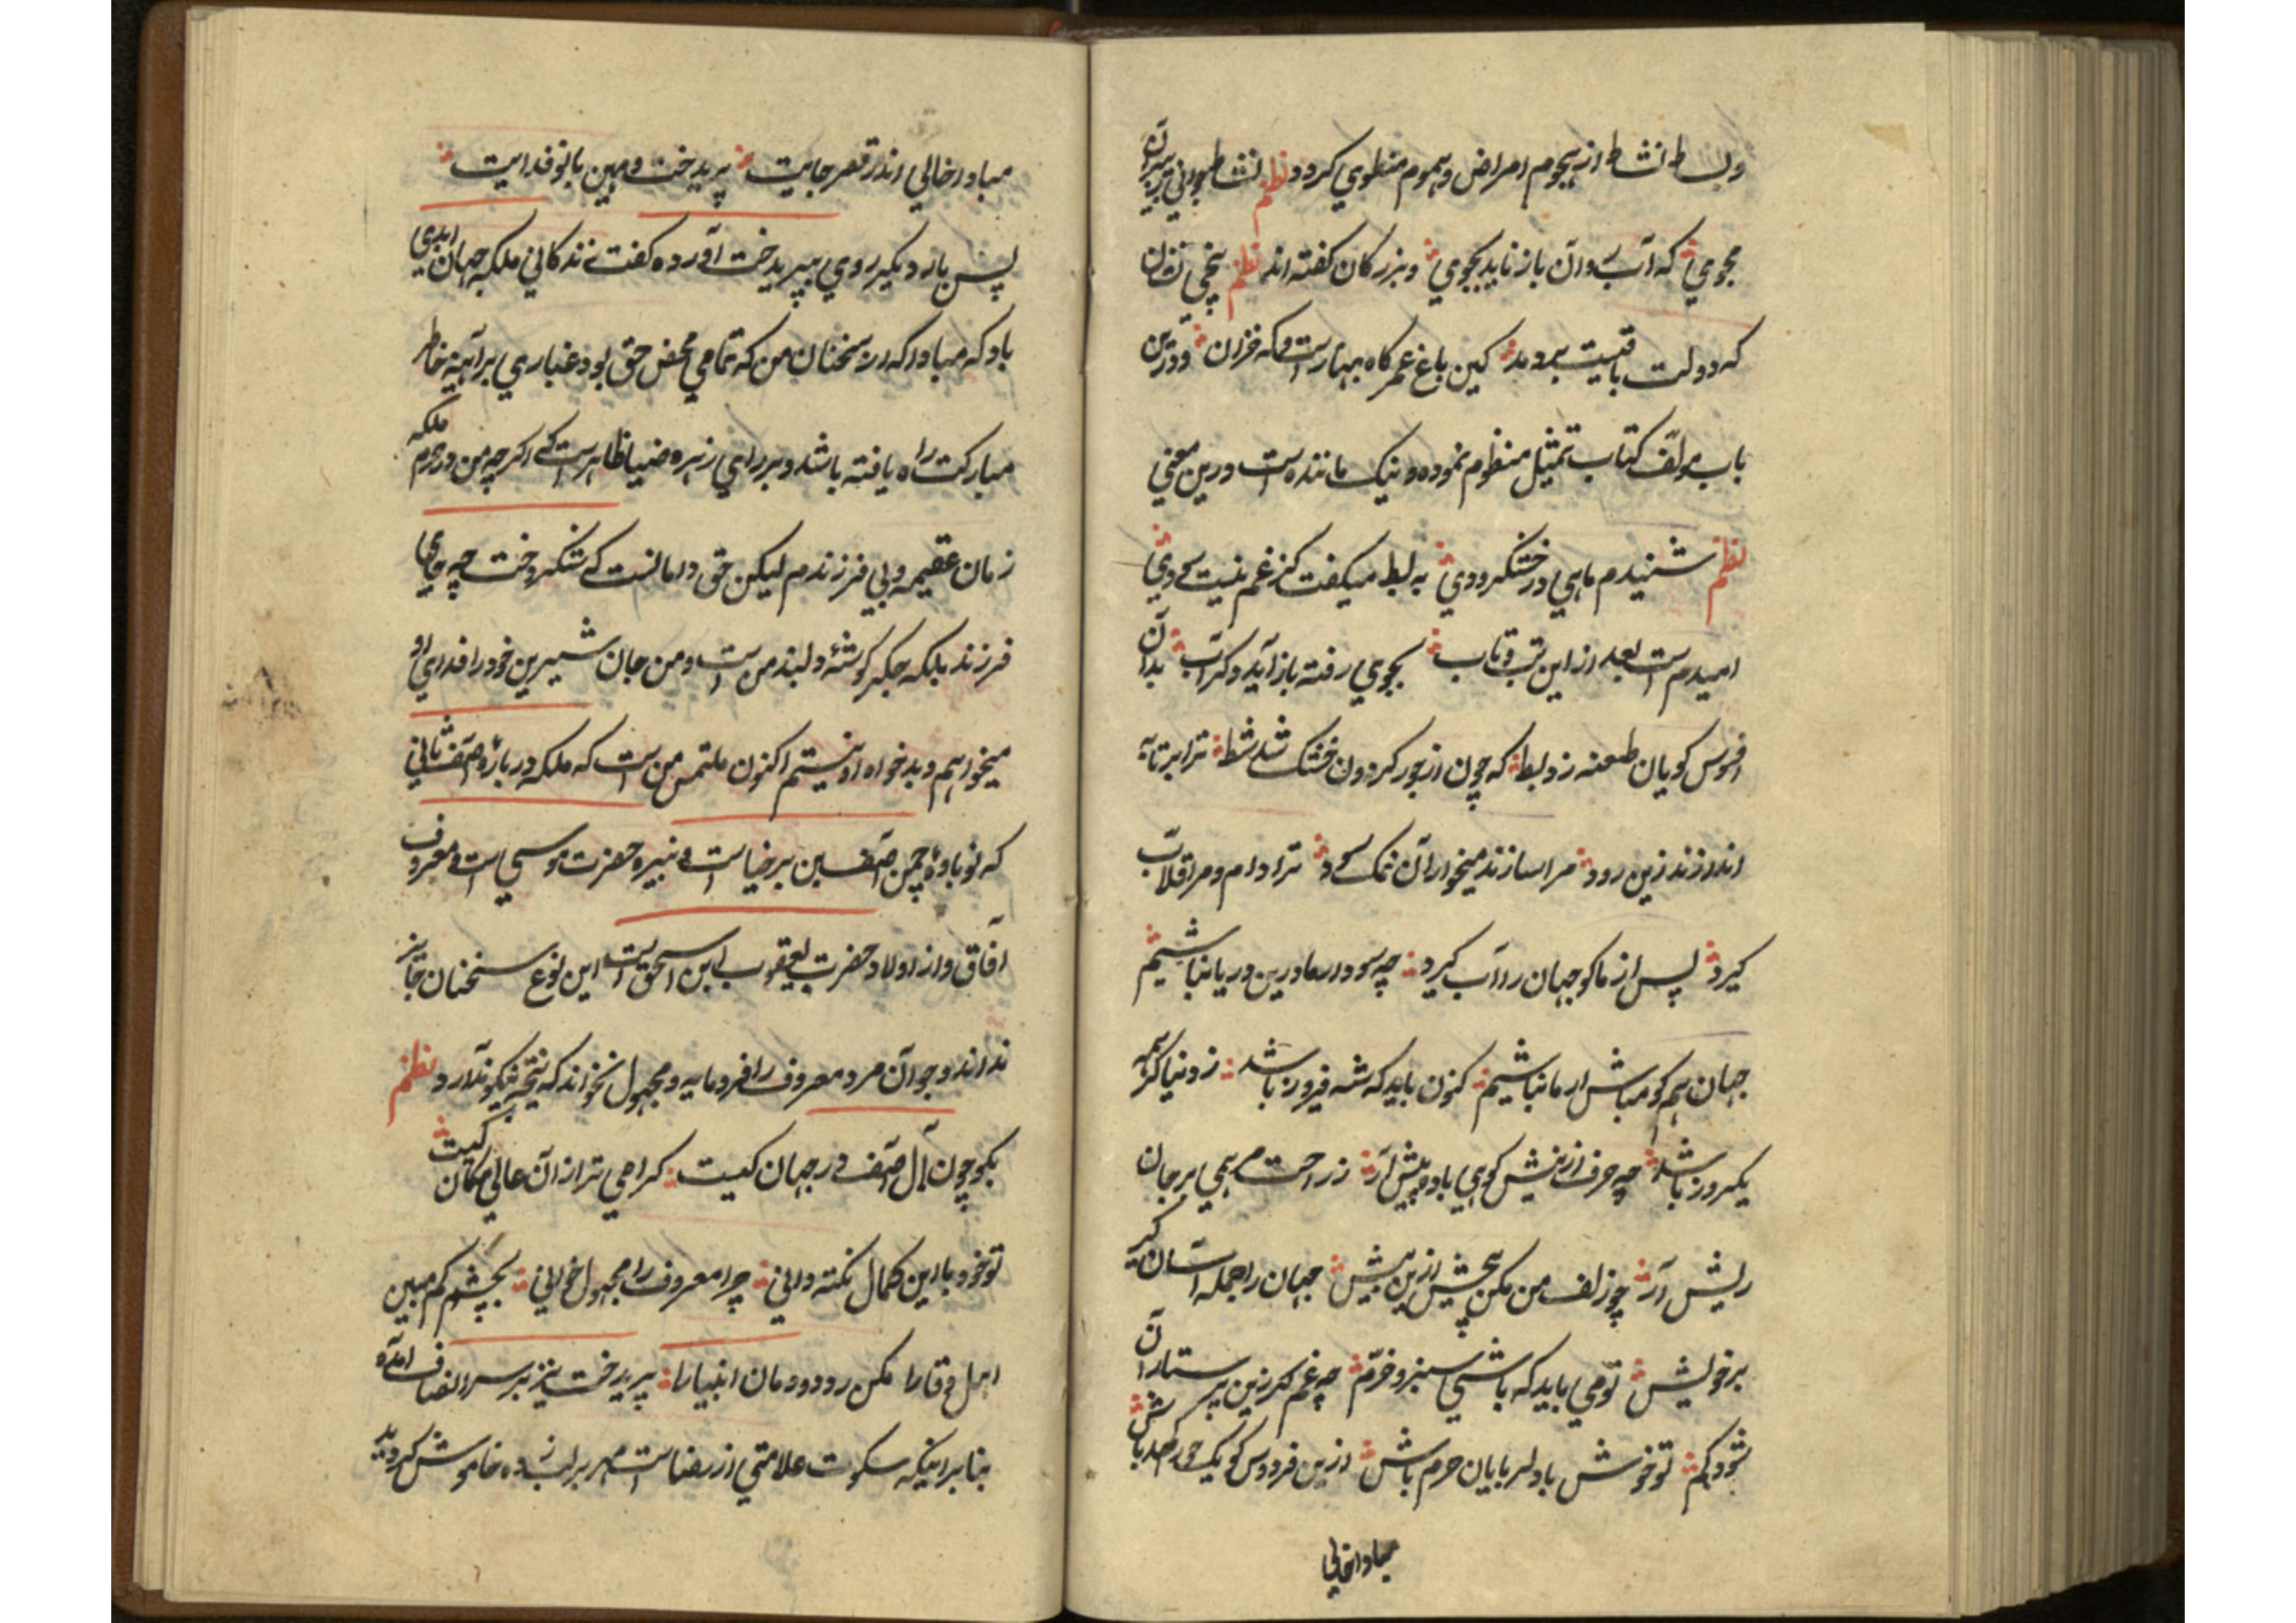 وبساط انشاط از هجوم امراض وهموم منطوي کردد نظم نشاط جواني ز پيران
مجوي که آب روان باز نايد بجوي وبزرکان کفته اند نظم
که دولت باقيست برومند کين باغ عمر کاه بهارست وکه خزان ودرين
باب مولف کتاب تمثيل منظوم نموده ونيک ماننده است درين معني
نظم شنيدم ماهي در خشکرودي به بط ميکفت کز غم نيست سودي
اميدم است بعد از اين تب وتاب بجوي رفته باز آيد دکر آب بدان
افسوس کويان طعنه زد بط که چون از جور کردون خشک شد شط ترا بر تابه
اندازند زين رود مرا سازند ميخواران نمک سود ترا دام ومرا قلاب
کيرد پس از ما کو جهان را آب کيرد چه سود ار ما درين دريا نباشيم
جهان هم کو مباش ار ما نباشيم کنون بايد که شه فيروز باشد ز دنيا کر همه
يکروز باشد چه حرف آفرينش کوهي باد و پيش آر ز راحت مرهمي بر جان
ريش آر چو زلف من مکن پيچش ازين بيش جهان را جمله آسان کير
بر خويش تو مي بايد که باشي سبز وخرم چه غم کر زين پرستاران
شود کم تو خوش با دلربايان حرم باش ازين فردوس کو يک حور کم باش
مبادا خالي
مبادا خالي اندر قصر جايت پريدخت ومهين بانو فدايت
پس بار ديکر روي بپريدخت آورده کفت زندکاني ملکه جهان ابدي
باد که مبادا که از سخنان من که تمامي محض حق بود غباري بر آيينه خاطر
مبارکت راه يافته باشد وبر راي زهره ضيا ظاهر است که اکر چه من در حرم ملکه
زمان عقيمه وبي فرزندم ليکن حق داناست که شنکرخت چه جاي
فرزند بلکه جکر کوشهٔ دلبند من است ومن جان شيرين خود را فداي او
ميخواهم وبدخواه او نيستم اکنون ملتمس من است که ملکه در بارهٔ آصف ثاني
که نوباوهٔ چمن آصف بن برخيا است ونبيره حضرت موسي است ومعروف
آفاق واز اولاد حضرت يعقوب ابن اسحق است اين نوع سخنان جايز
نداند وجوان مرد معروف را فرومايه ومجهول نخواند که نتيجه نيکو ندارد نظم
بکو چون آل آصف در جهان کيست کرامي تر از آن عالي مکان کيست
تو خود با اين کمال نکته داني چرا معروف را مجهول خواني بچشم کم مبين
اهل وقارا مکن رد دودمان انبيا را پريدخت نيز بر سر انصاف آمده
بنابر اينکه سکوت علامتي از رضا است مهر بر لب زده خاموش کرديد